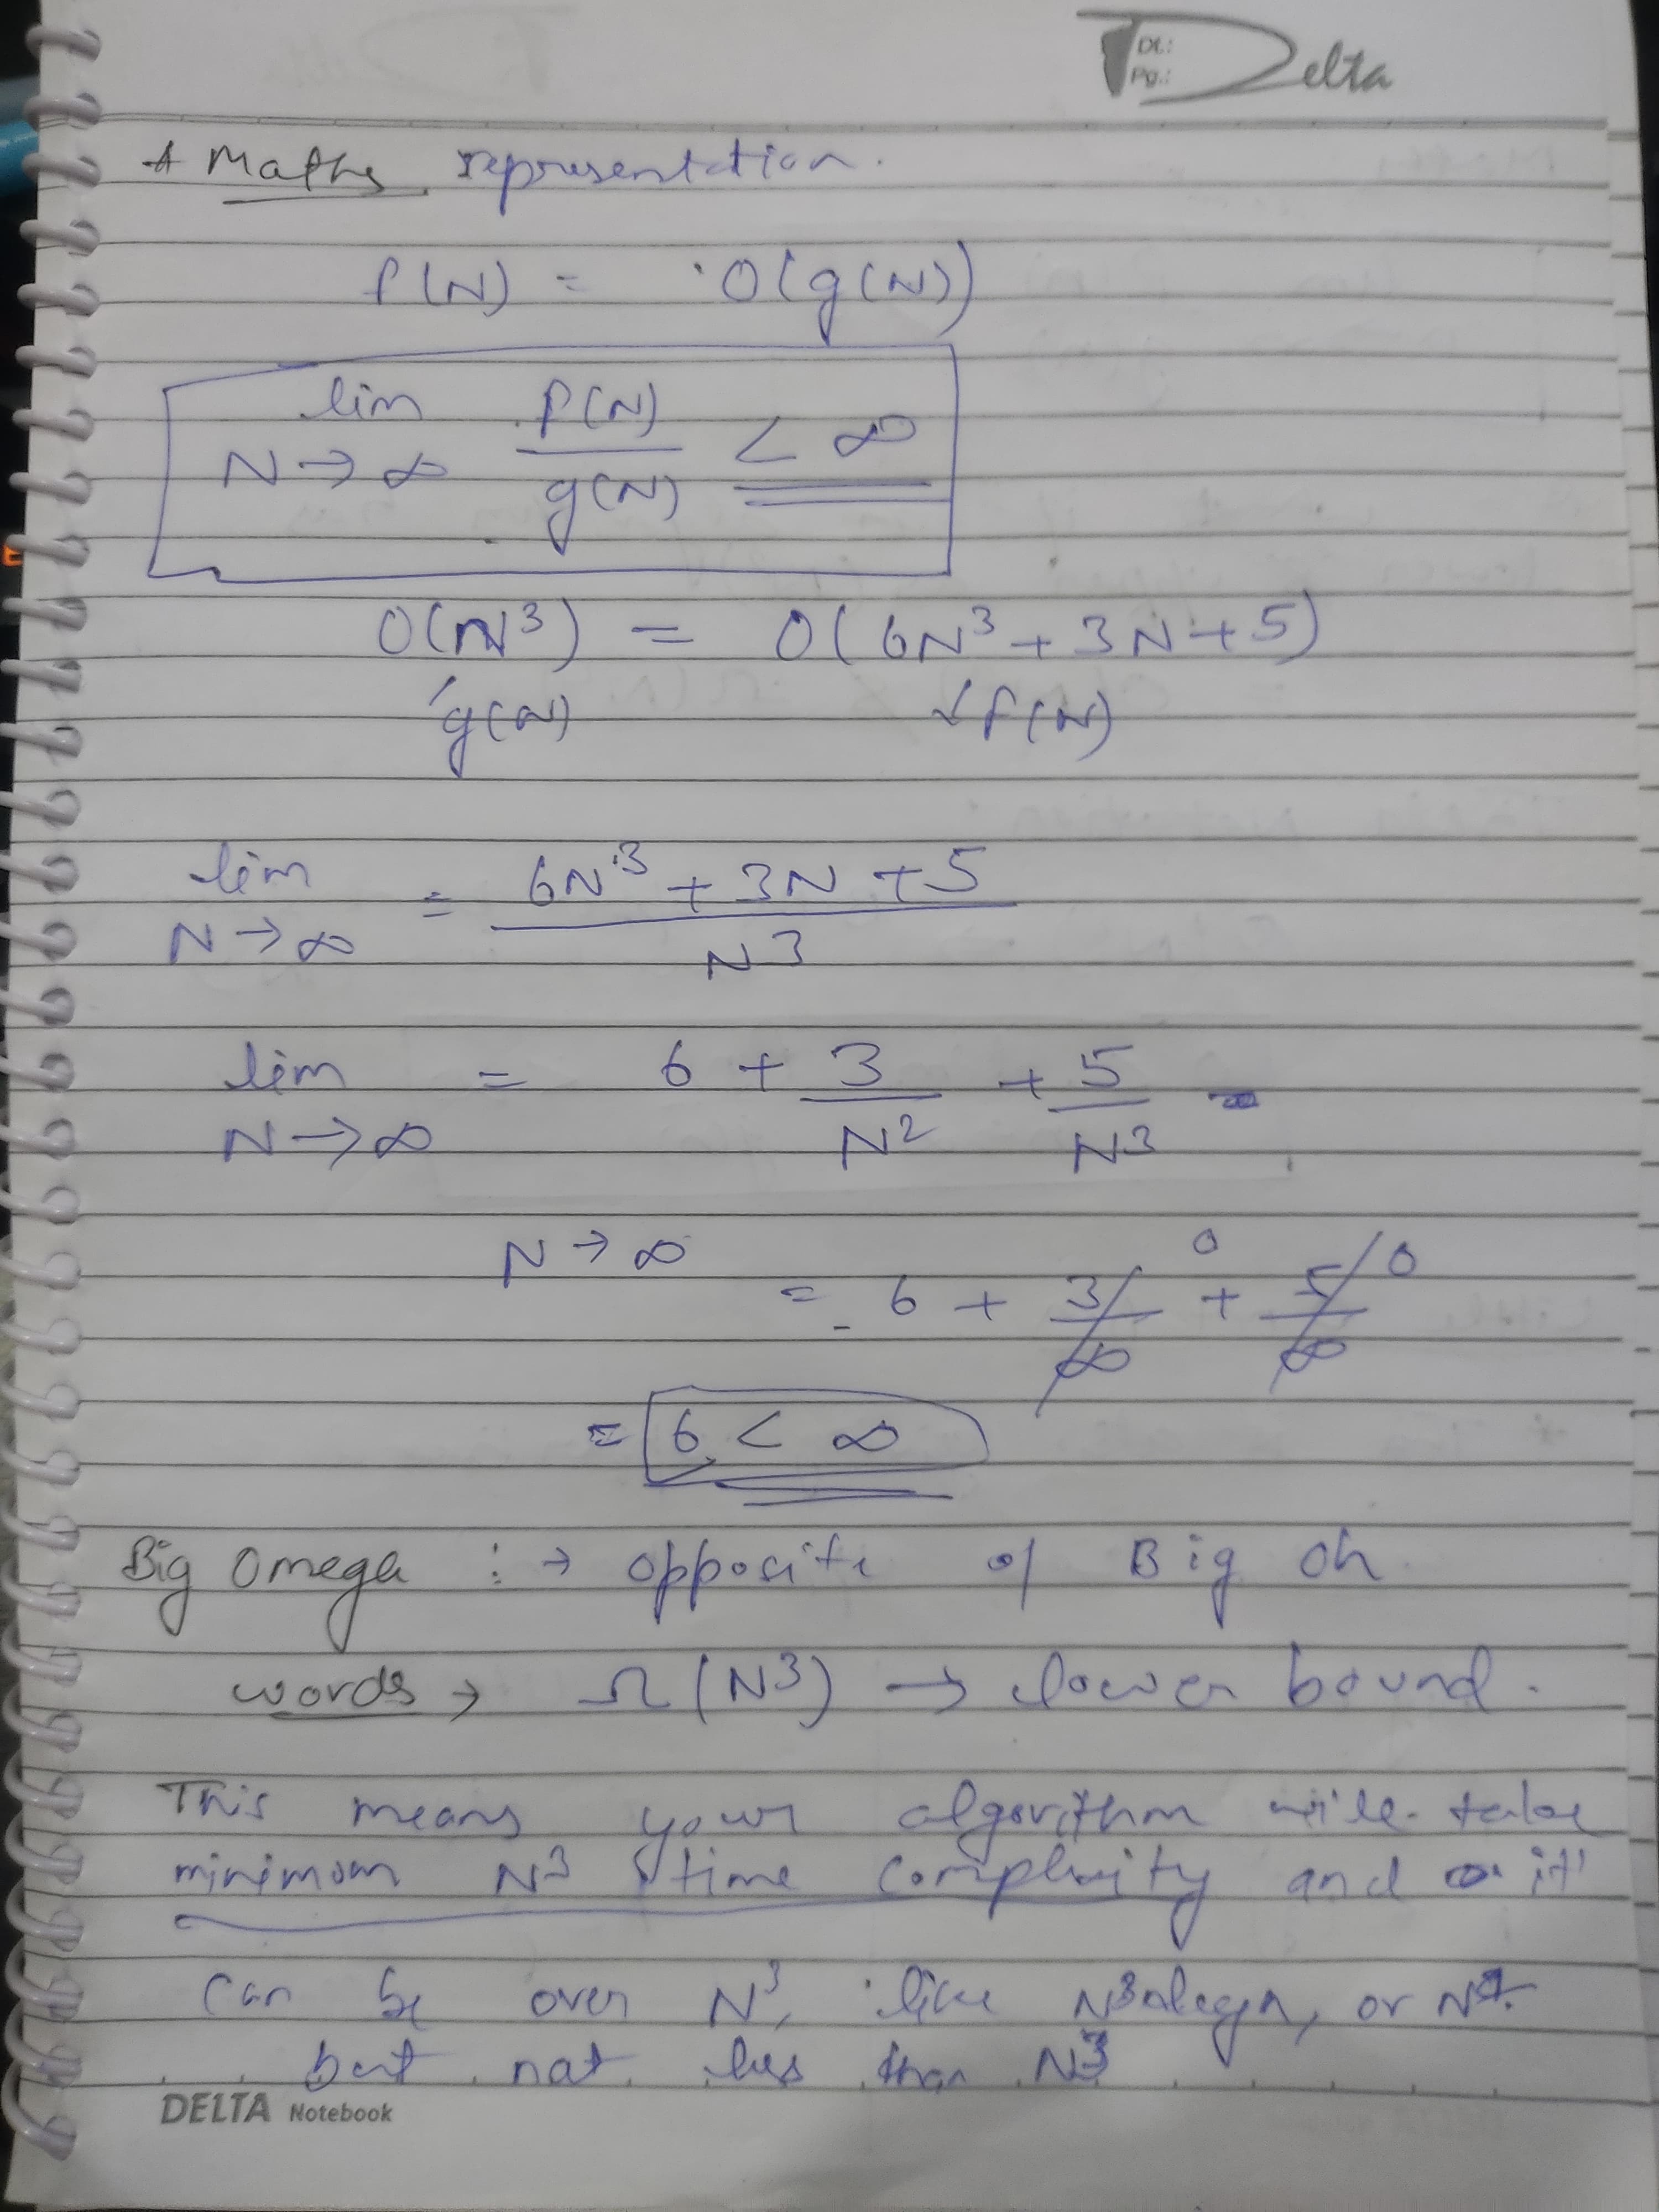 Dt.:
Pg.:
Delta
* Maths representation.
f(N) = O(g(N))
lim N→∞ f(N)/g(N) < ∞
O(N³) = O(6N³ + 3N + 5)
g(N) f(N)
lim N→∞ = (6N³ + 3N + 5)/N³
lim N→∞ = 6 + 3/N² + 5/N³
N→∞ = 6 + 3/∞ 0 + 5/∞ 0
= 6 < ∞
Big Omega :→ opposite of Big Oh
words → Ω(N³) → lower bound.
This means your algorithm will take
minimum N³ time complexity and it
can be over N³, like or
but not less than N³
DELTA Notebook